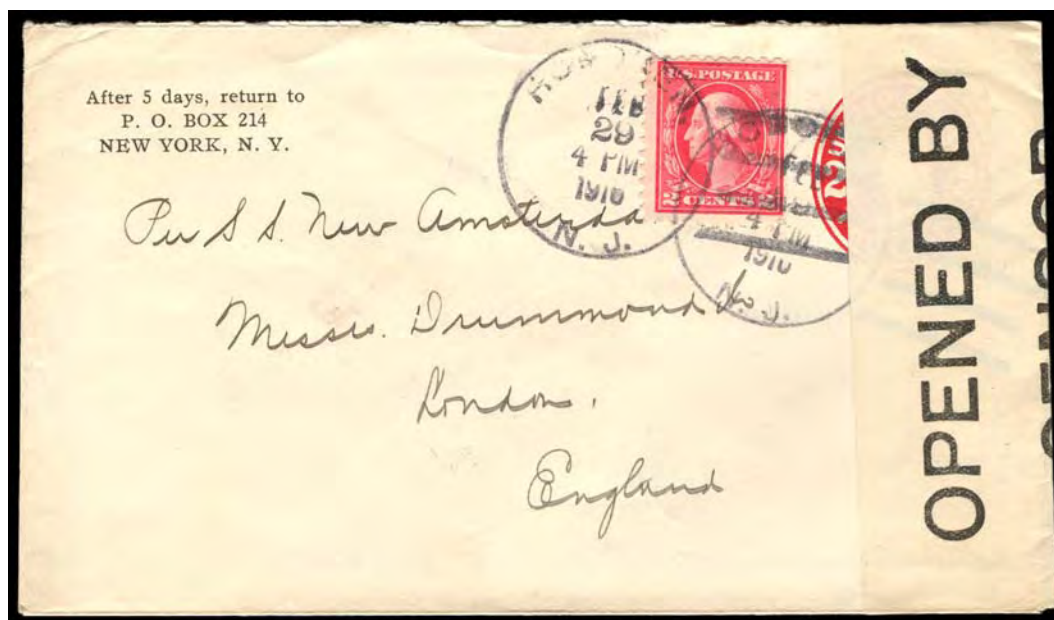 After 5 days, return to
P. O. BOX 214
NEW YORK, N. Y.
FEB
29
4 PM
1916
N. J.
U.S. POSTAGE
2 CENTS 2
4 PM
1916
N. J.
Per S S. New Amsterda
Messrs. Drummond
London.
England
OPENED BY
CENSOR